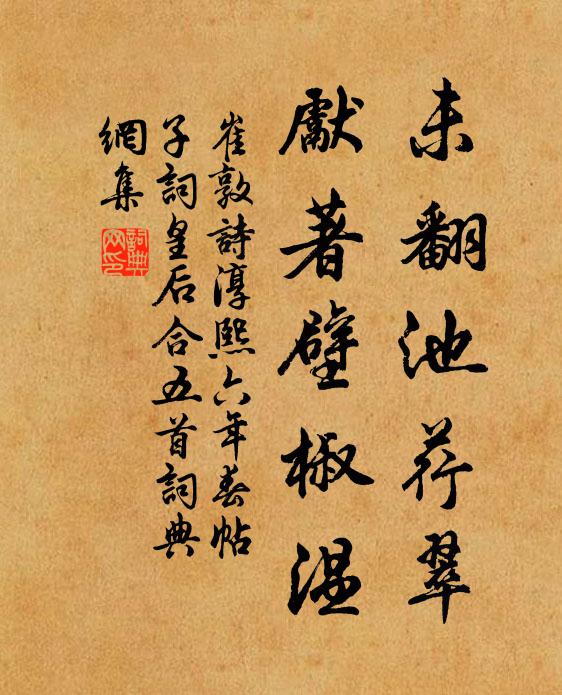 未翻池荇翠
獻著壁椒温
崔敦詩淳熙六年春帖
子詞皇后合五首詞典
網集
詞典網印